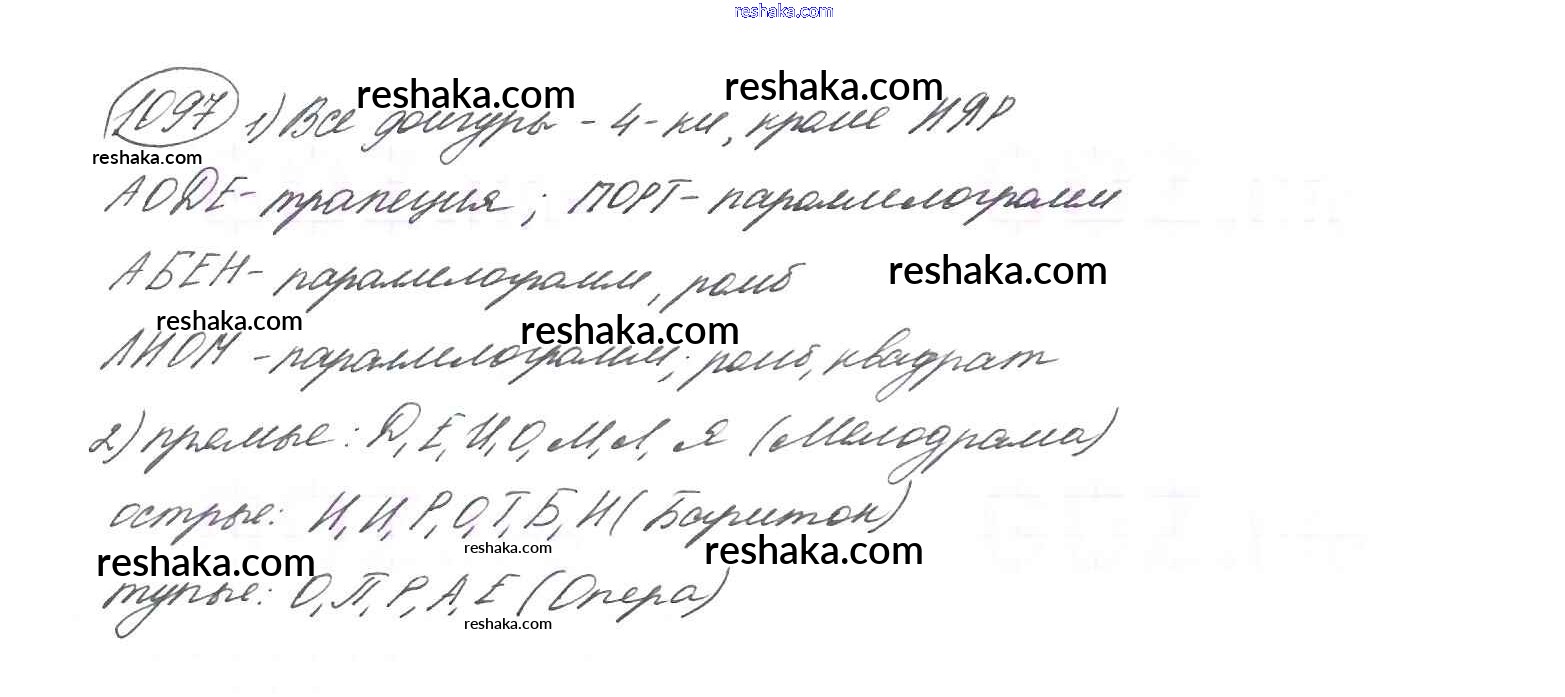 reshaka.com
reshaka.com reshaka.com
1097 1) Все фигуры - 4-ки, кроме ИЯР
reshaka.com
АОДЕ - трапеция; ПОРТ - параллелограмм
АБЕН - параллелограмм, ромб
reshaka.com
reshaka.com reshaka.com
ЛИОМ - параллелограмм; ромб, квадрат
2) прямые: Д, Е, И, О, М, Л, Я (Мелодрама)
острые: И, И, Р, О, Т, Б, Н (Баритон)
reshaka.com reshaka.com reshaka.com
тупые: О, П, Р, А, Е (Опера)
reshaka.com